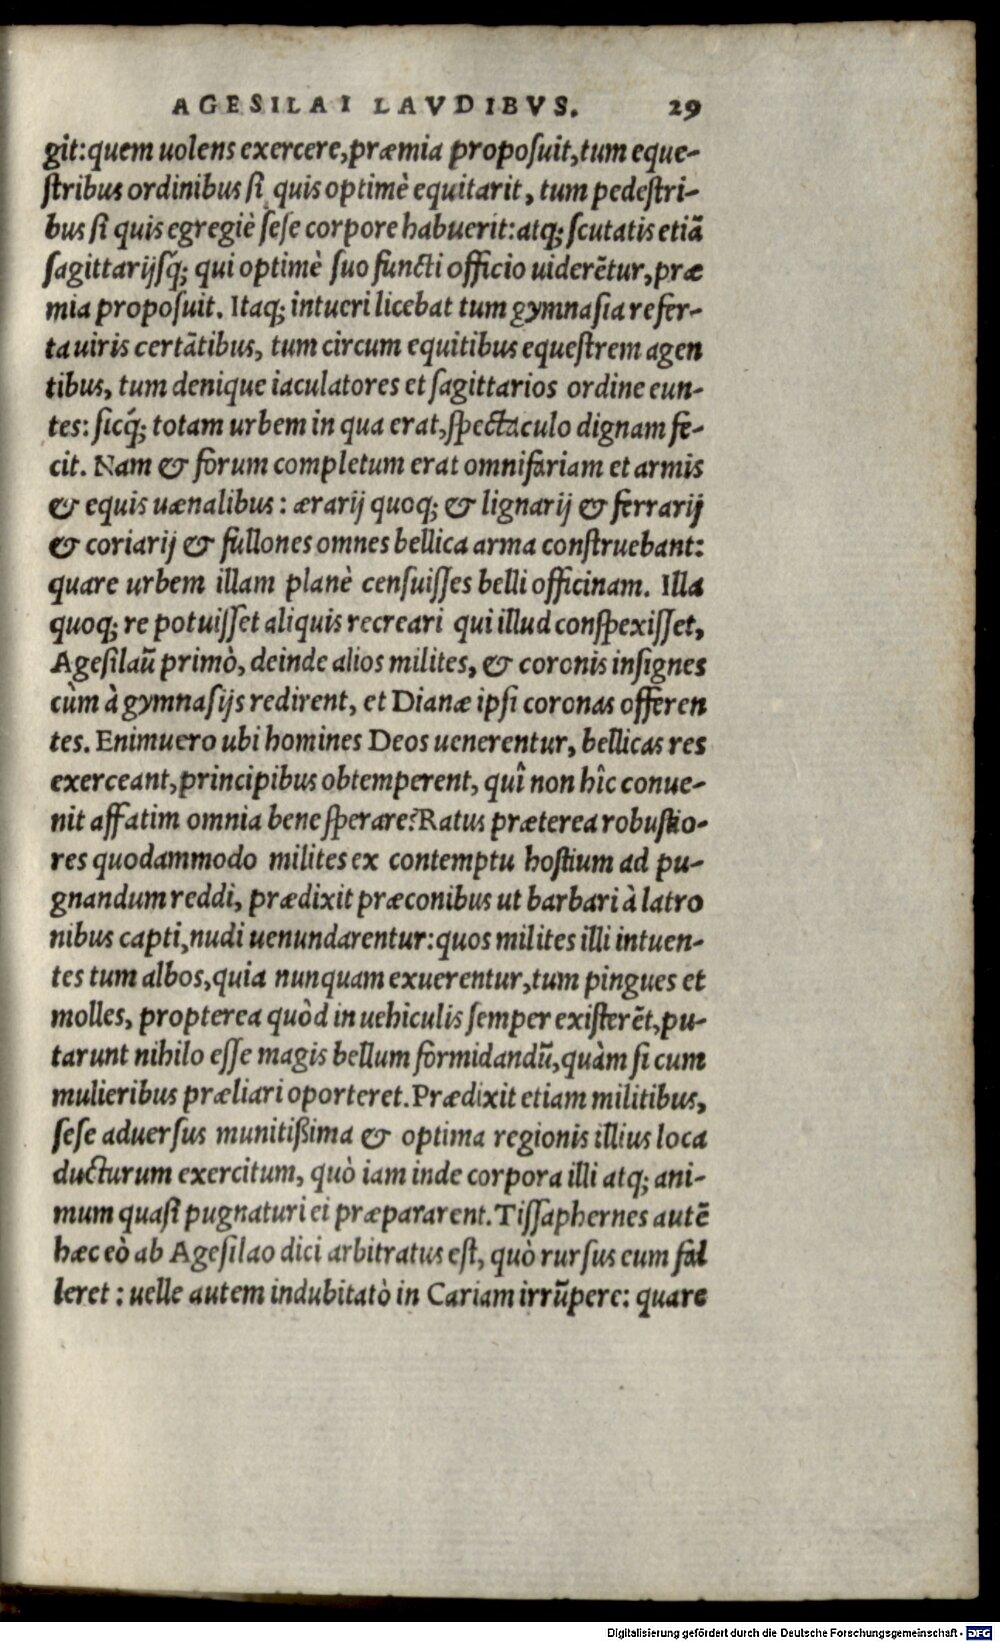 AGESILAI LAVDIBVS. 29
git: quem uolens exercere, præmia proposuit, tum eque-
stribus ordinibus si quis optimè equitarit, tum pedestri-
bus si quis egregiè sese corpore habuerit: atq; scutatis etiã
sagittarijsq́; qui optimè suo functi officio uiderẽtur, præ
mia proposuit. Itaq; intueri licebat tum gymnasia refer-
ta uiris certãtibus, tum circum equitibus equestrem agen
tibus, tum denique iaculatores et sagittarios ordine eun-
tes: sicq́; totam urbem in qua erat, spectaculo dignam fe-
cit. Nam & forum completum erat omnifariam et armis
& equis uænalibus: ærarij quoq; & lignarij & ferrarij
& coriarij & fullones omnes bellica arma construebant:
quare urbem illam planè censuisses belli officinam. Illa
quoq; re potuisset aliquis recreari qui illud conspexisset,
Agesilaũ primò, deinde alios milites, & coronis insignes
cùm à gymnasijs redirent, et Dianæ ipsi coronas offeren
tes. Enimuero ubi homines Deos uenerentur, bellicas res
exerceant, principibus obtemperent, quî non hîc conue-
nit affatim omnia bene sperare? Ratus præterea robustio-
res quodammodo milites ex contemptu hostium ad pu-
gnandum reddi, prædixit præconibus ut barbari à latro
nibus capti, nudi uenundarentur: quos milites illi intuen-
tes tum albos, quia nunquam exuerentur, tum pingues et
molles, propterea quòd in uehiculis semper existerẽt, pu-
tarunt nihilo esse magis bellum formidandũ, quàm si cum
mulieribus præliari oporteret. Prædixit etiam militibus,
sese aduersus munitißima & optima regionis illius loca
ducturum exercitum, quò iam inde corpora illi atq; ani-
mum quasi pugnaturi ei præpararent. Tissaphernes autẽ
hæc eò ab Agesilao dici arbitratus est, quò rursus eum fal
leret: uelle autem indubitatò in Cariam irrũpere: quare
Digitalisierung gefördert durch die Deutsche Forschungsgemeinschaft - DFG